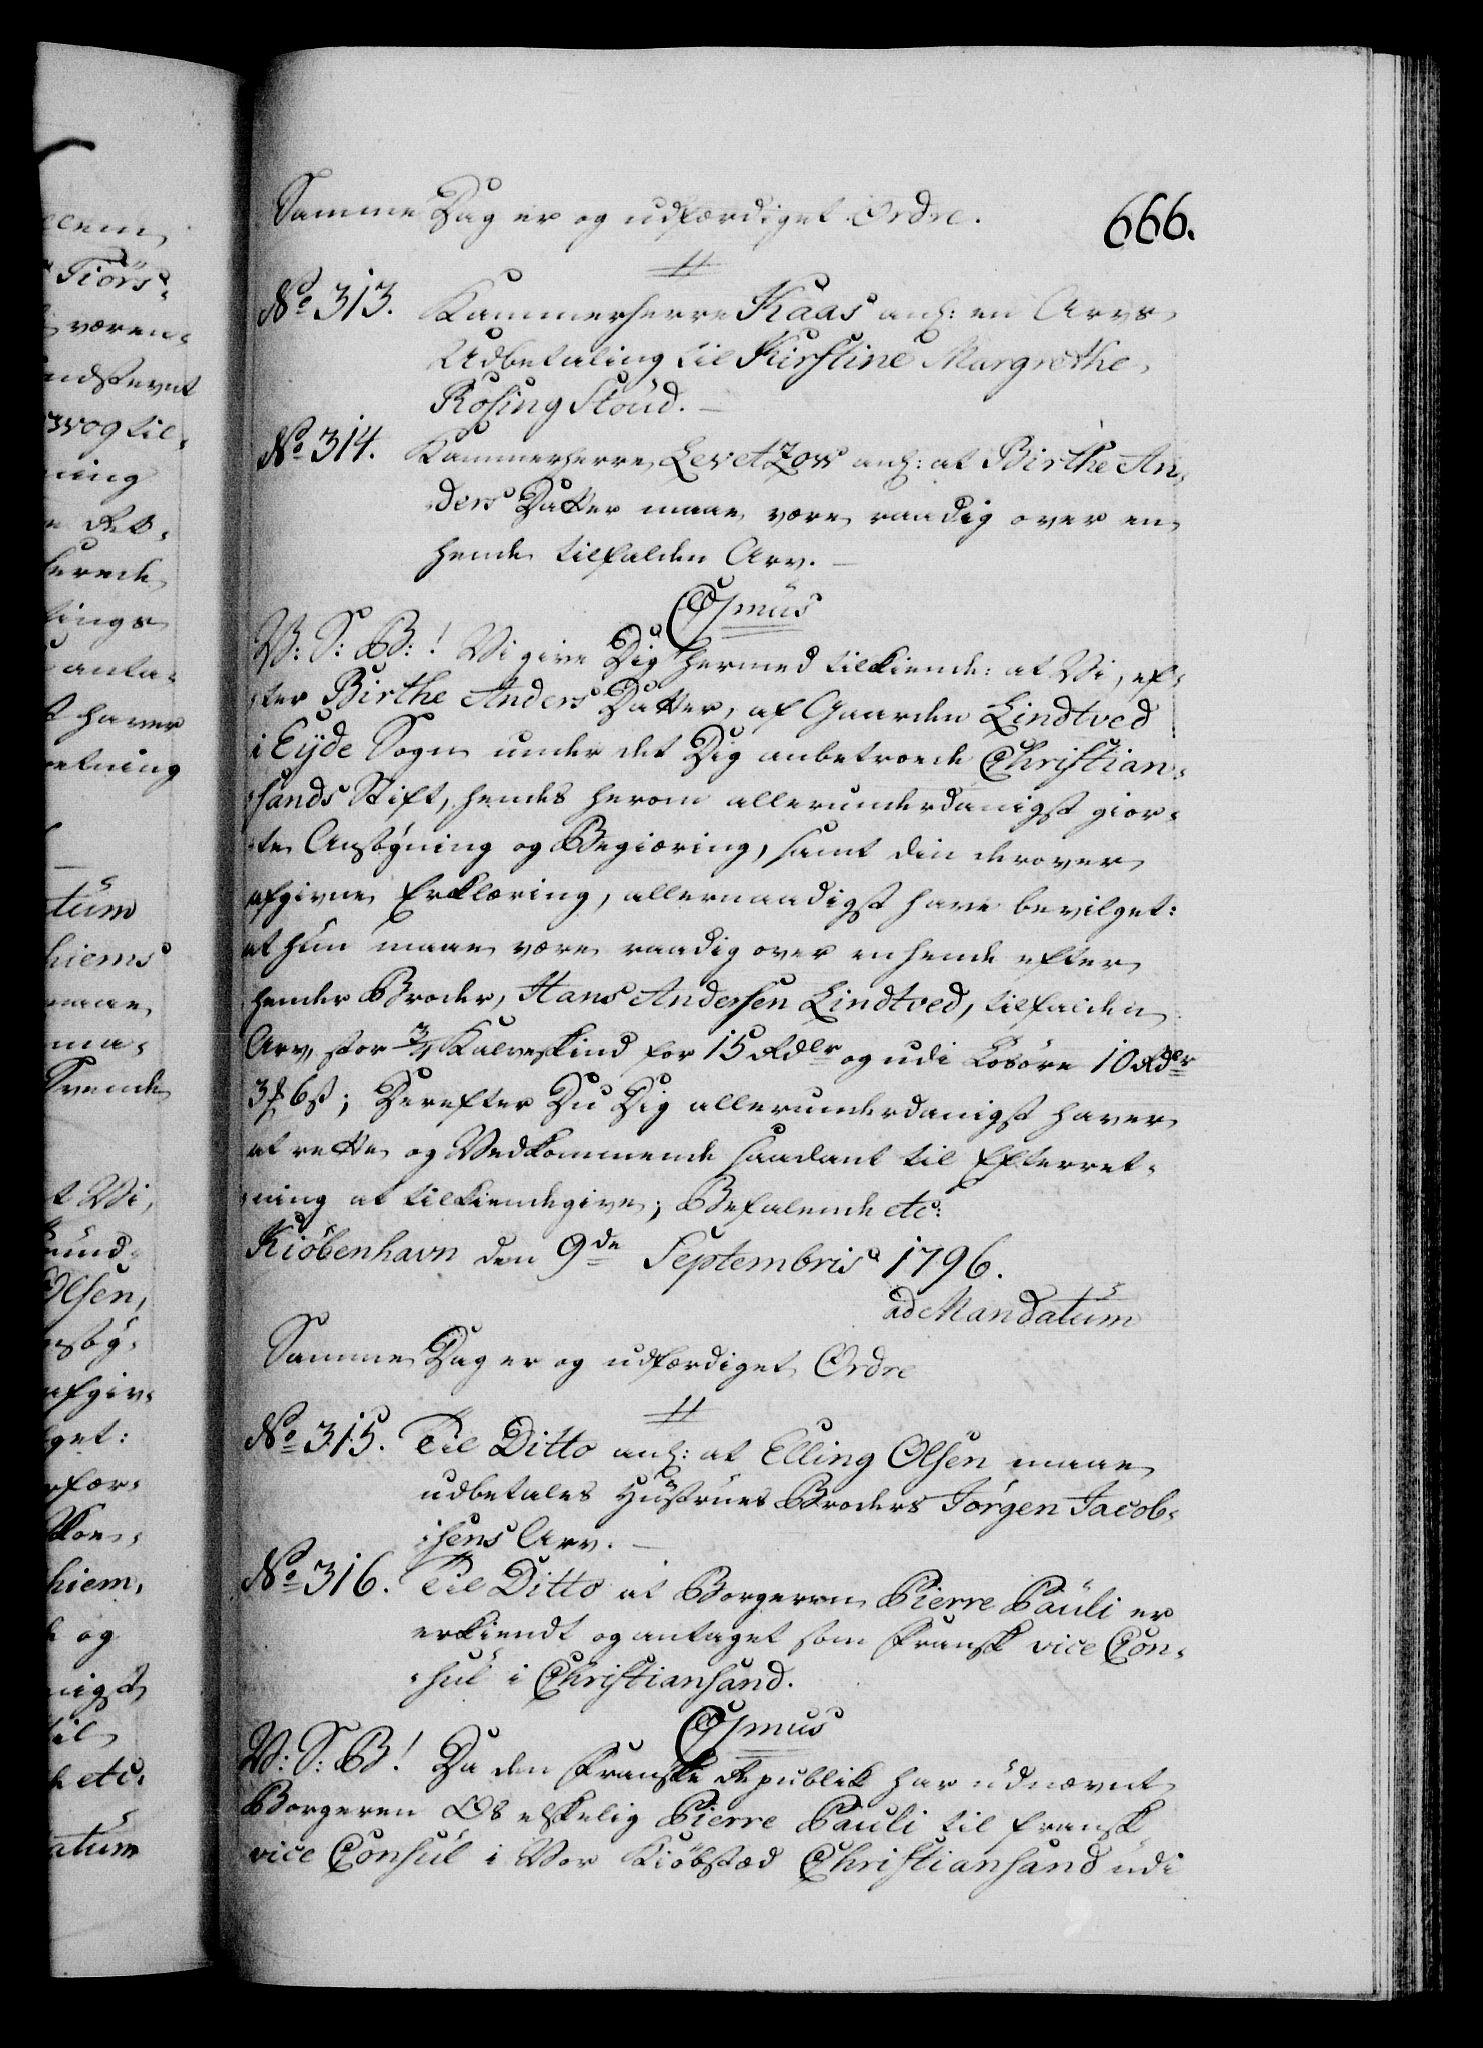 Samme Dag er og udfærdiget Ordre.
666.
No 313. Kammerherre Kaas anl: en Arvs
Udbetaling til Kirstine Margrethe
Rosing Stoud.
No 314. Kammerherre Levetzow anl: at Birthe An-
ders Datter maae være raadig over en
hende tilfalden Arv.
C 7mus
V: S: B:! Vi give Dig hermed tilkiende: at Vi, ef-
ter Birthe Anders Datter, af Gaarden Lindtved
i Eyde Sogn under det Dig anbetroede Christian-
sands Stift, hendes herom allerunderdanigst gior-
te Ansøgning og Begiæring, samt din derover
afgivne Erklæring, allernaadigst have bevilget:
at hun maae være raadig over en hende efter
hendes Broder, Hans Andersen Lindtved, tilfalden
Arv, stor 3/4 Kalveskind for 15 Rdlr og udi Løsøre 10 Rdlr
3 ƒ 6 ß; Derefter Du Dig allerunderdanigst haver
at rette og Vedkommende saadant til Efterret-
ning at tilkiendegive; Befalende etc:
Kiøbenhavn den 9de Septembris 1796.
ad Mandatum
Samme Dag er og udfærdiget Ordre
No 315. Til Ditto anl: at Elling Olsen maae
udbetales Hustrues Broders Jørgen Jacob-
sens Arv.
No 316. Til Ditto at Borgeren Pierre Pauli er
erkiendt og antaget som Fransk vice Con-
sul i Christiansand.
C 7mus
V: S: B! Da den Franske Republik har udnævnt
Borgeren Os elskelig Pierre Pauli til fransk
vice Consul i Vor Kiøbstæd Christiansand udi